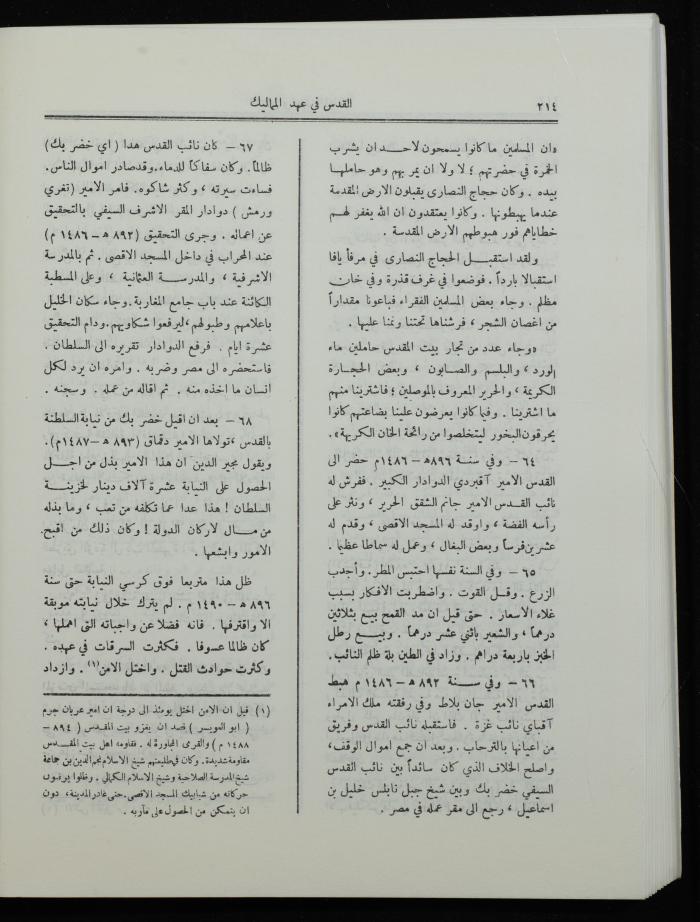 ٢١٤
القدس في عهد المماليك
«ان المسلمين ما كانوا يسمحون لاحد ان يشرب
الخمرة في حضرتهم ؛ لا ولا ان يمر بهم وهو حاملها
بيده . وكان حجاج النصارى يقبلون الارض المقدسة
عندما يهبطونها . وكانوا يعتقدون ان الله يغفر لهم
خطاياهم فور هبوطهم الارض المقدسة .
ولقد استقبل الحجاج النصارى في مرفأ يافا
استقبالا بارداً . فوضعوا في غرف قذرة وفي خان
مظلم . وجاء بعض المسلمين الفقراء فباعونا مقداراً
من اغصان الشجر ، فرشناها تحتنا ونمنا عليها .
«وجاء عدد من تجار بيت المقدس حاملين ماء
الورد ، والبلسم والصابون ، وبعض الحجارة
الكريمة ، والحرير المعروف بالموصلين ؛ فاشترينا منهم
ما اشترينا . وفيما كانوا يعرضون علينا بضاعتهم كانوا
يحرقون البخور ليتخلصوا من رائحة الخان الكريهة» .
٦٤ – وفي سنة ٨٩٦ هـ – ١٤٨٦ م حضر الى
القدس الامير آقبردي الدوادار الكبير . ففرش له
نائب القدس الامير جانم الشقق الحرير ، ونثر على
رأسه الفضة ، واوقد له المسجد الاقصى ، وقدم له
عشرين فرساً وبعض البغال ، وعمل له سماطا عظيما .
٦٥ – وفي السنة نفسها احتبس المطر . وأجدب
الزرع . وقل القوت . واضطربت الافكار بسبب
غلاء الأسعار . حتى قيل ان مد القمح بيع بثلاثين
درهماً ، والشعير باثني عشر درهماً . وبيع رطل
الخبز باربعة دراهم . وزاد في الطين بلة ظلم النائب .
٦٦ – وفي سنة ٨٩٢ هـ – ١٤٨٦ م هبط
القدس الامير جان بلاط وفي رفقته ملك الامراء
آقباي نائب غزة . فاستقبله نائب القدس وفريق
من اعيانها بالترحاب . وبعد ان جمع اموال الوقف ،
واصلح الخلاف الذي كان سائداً بين نائب القدس
السيفي خضر بك وبين شيخ جبل نابلس خليل بن
اسماعيل ، رجع الى مقر عمله في مصر .
٦٧ – كان نائب القدس هذا ( اي خضر بك )
ظالماً . وكان سفاكاً للدماء . وقد صادر اموال الناس .
فساءت سيرته ، وكثر شاكوه . فامر الامير ( تغري
ورمش ) دوادار المقر الاشرف السيفي بالتحقيق
عن اعماله . وجرى التحقيق ( ٨٩٢ هـ – ١٤٨٦ م )
عند المحراب في داخل المسجد الاقصى . ثم بالمدرسة
الاشرفية ، والمدرسة العثمانية ، وعلى المسطبة
الكائنة عند باب جامع المغاربة . وجاء سكان الخليل
باعلامهم وطبولهم ، ليرفعوا شكاويهم . ودام التحقيق
عشرة ايام . فرفع الدوادار تقريره الى السلطان .
فاستحضره الى مصر وضربه . وامره ان يرد لكل
انسان ما اخذه منه . ثم اقاله من عمله . وسجنه .
٦٨ – بعد ان اقيل خضر بك من نيابة السلطنة
بالقدس ، تولاها الامير دقماق ( ٨٩٣ هـ – ١٤٨٧ م ) .
ويقول مجير الدين ان هذا الامير بذل من اجل
الحصول على النيابة عشرة آلاف دينار لخزينة
السلطان ! هذا عدا عما تكلفه من تعب ، وما بذله
من مال لاركان الدولة ! وكان ذلك من اقبح
الامور وابشعها .
ظل هذا متربعا فوق كرسي النيابة حتى سنة
٨٩٦ هـ – ١٤٩٠ م . لم يترك خلال نيابته موبقة
الا واقترفها . فانه فضلا عن واجباته التي اهملها ،
كان ظالما عسوفا . فكثرت السرقات في عهده .
وكثرت حوادث القتل . واختل الامن (١) . وازداد
(١) قيل ان الامن اختل يومئذ الى درجة ان امير عربان جرم
( ابو العويسر ) قصد ان يغزو بيت المقدس ( ٨٩٤ –
١٤٨٨ م ) والقرى المجاورة له . فقاومه اهل بيت المقدس
مقاومة شديدة . وكان في طليعتهم شيخ الاسلام نجم الدين بن جماعة
شيخ المدرسة الصلاحية وشيخ الاسلام الكمالي . وظلوا يرقبون
حركاته من شبابيك المسجد الاقصى . حتى غادر المدينة ، دون
ان يتمكن من الحصول على مآربه .